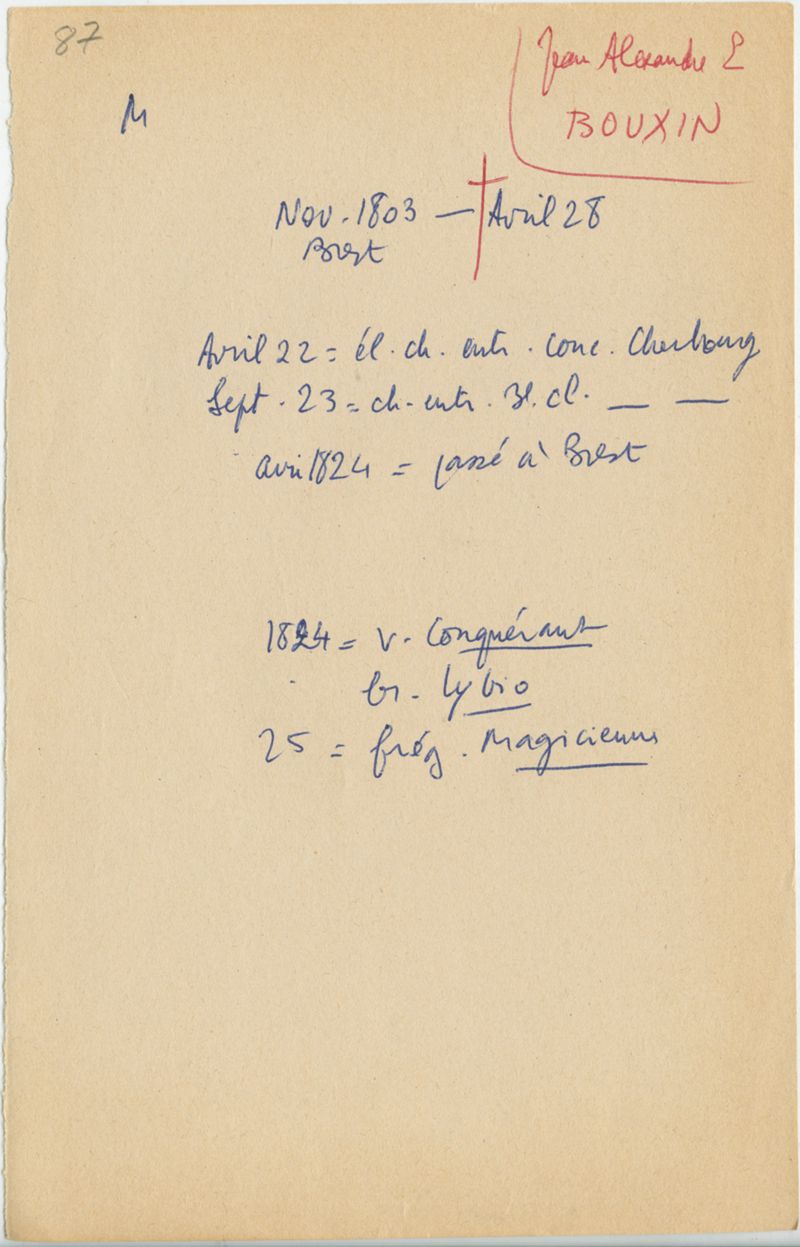 87
Jean Alexandre E
BOUXIN
M
Nov. 1803 — Avril 28
Brest
Avril 22 = él. ch. entr. conc. Cherbourg
Sept. 23 = ch. entr. 3e. cl. — —
avril 1824 = passé à Brest
1824 = v. Conquérant
br. Lybio
25 = frég. Magicienne